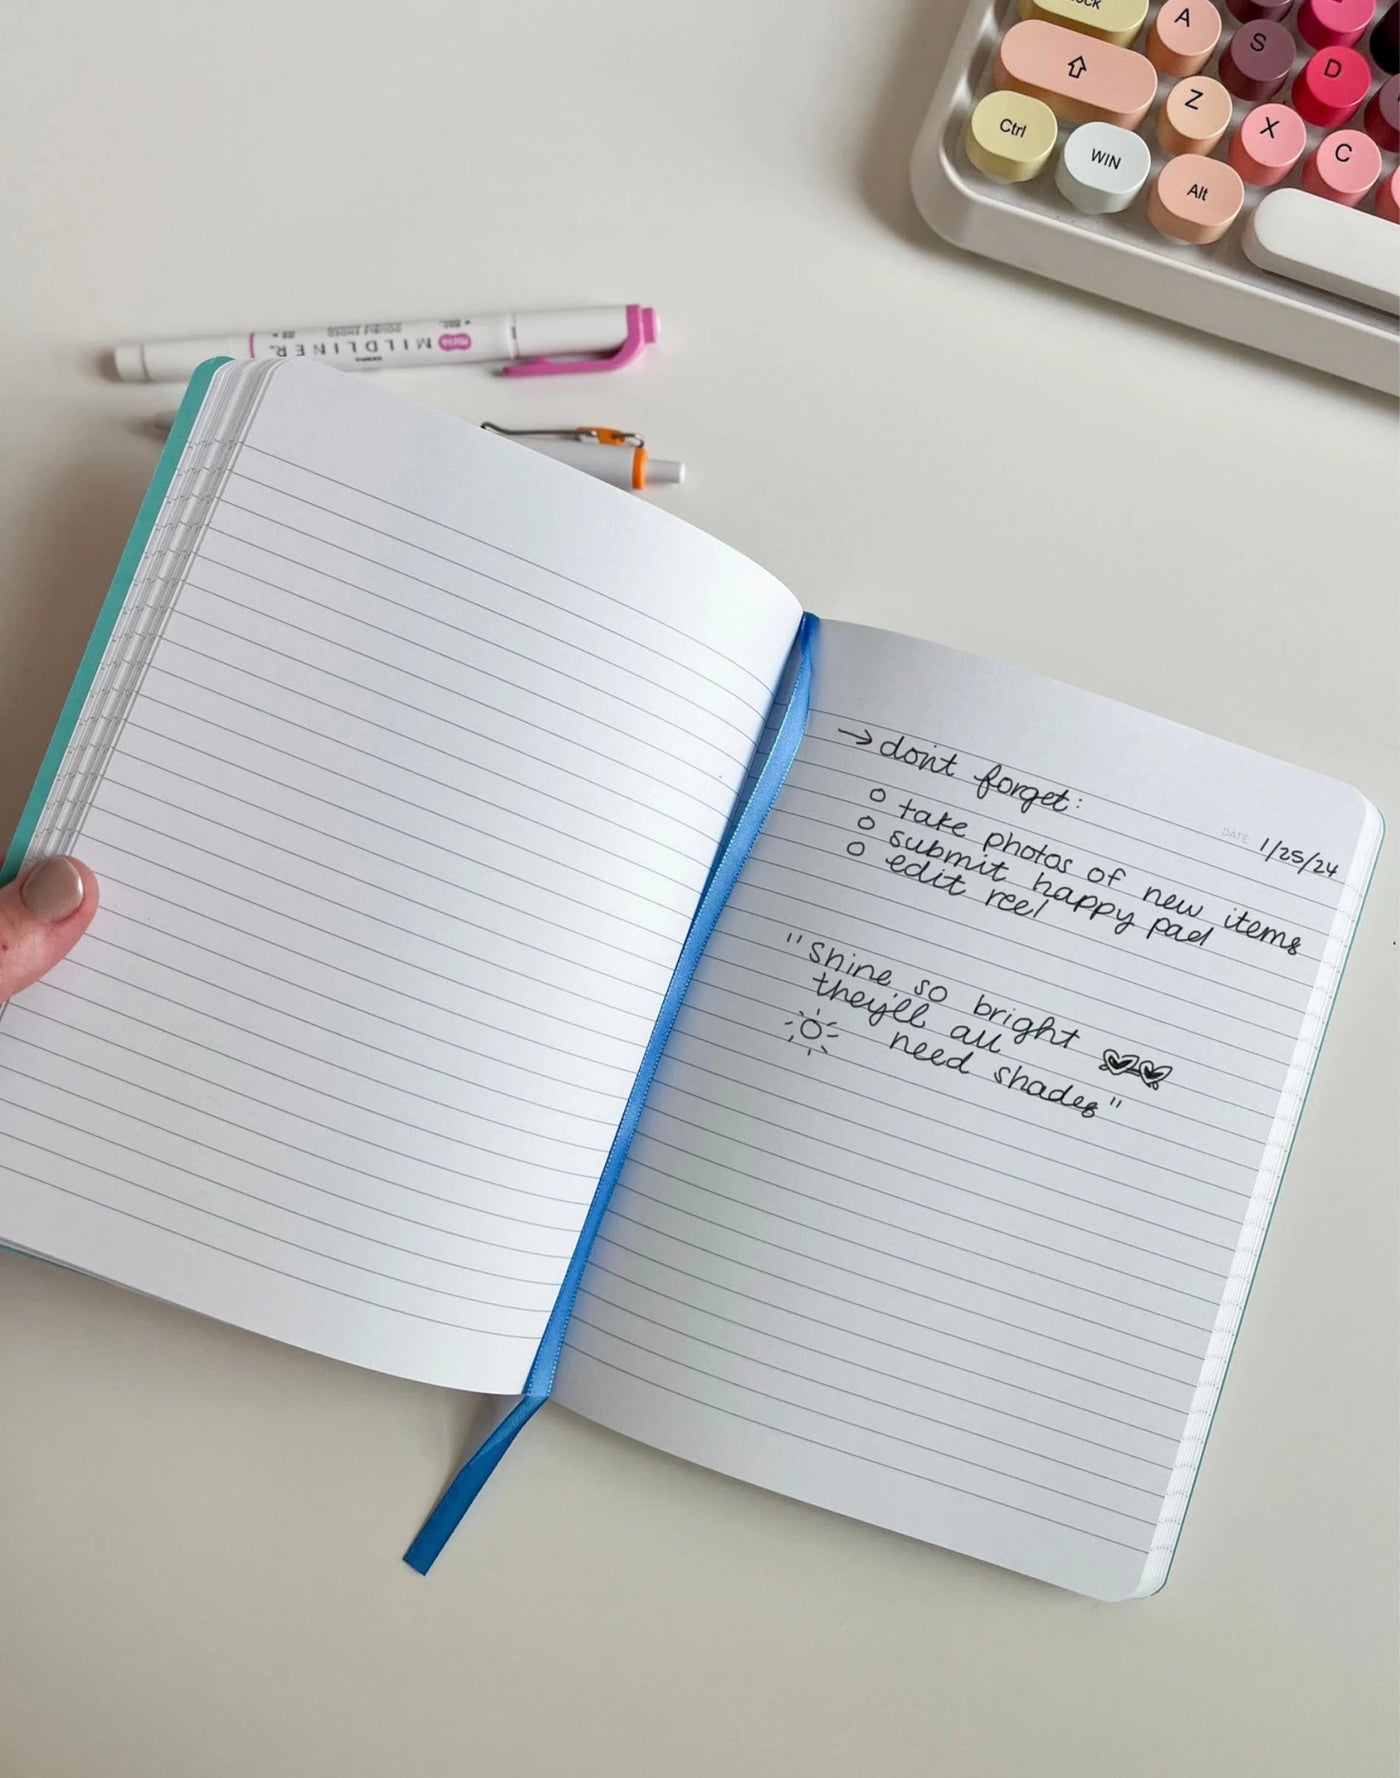 LOCK
A
S
D
⇧
Z
X
C
Ctrl
WIN
Alt
MILDLINER
DOUBLE ENDED
ZEBRA
→ don't forget:
DATE: 1/25/24
o take photos of new items
o submit happy pad
o edit reel
"shine so bright
they'll all
need shades"